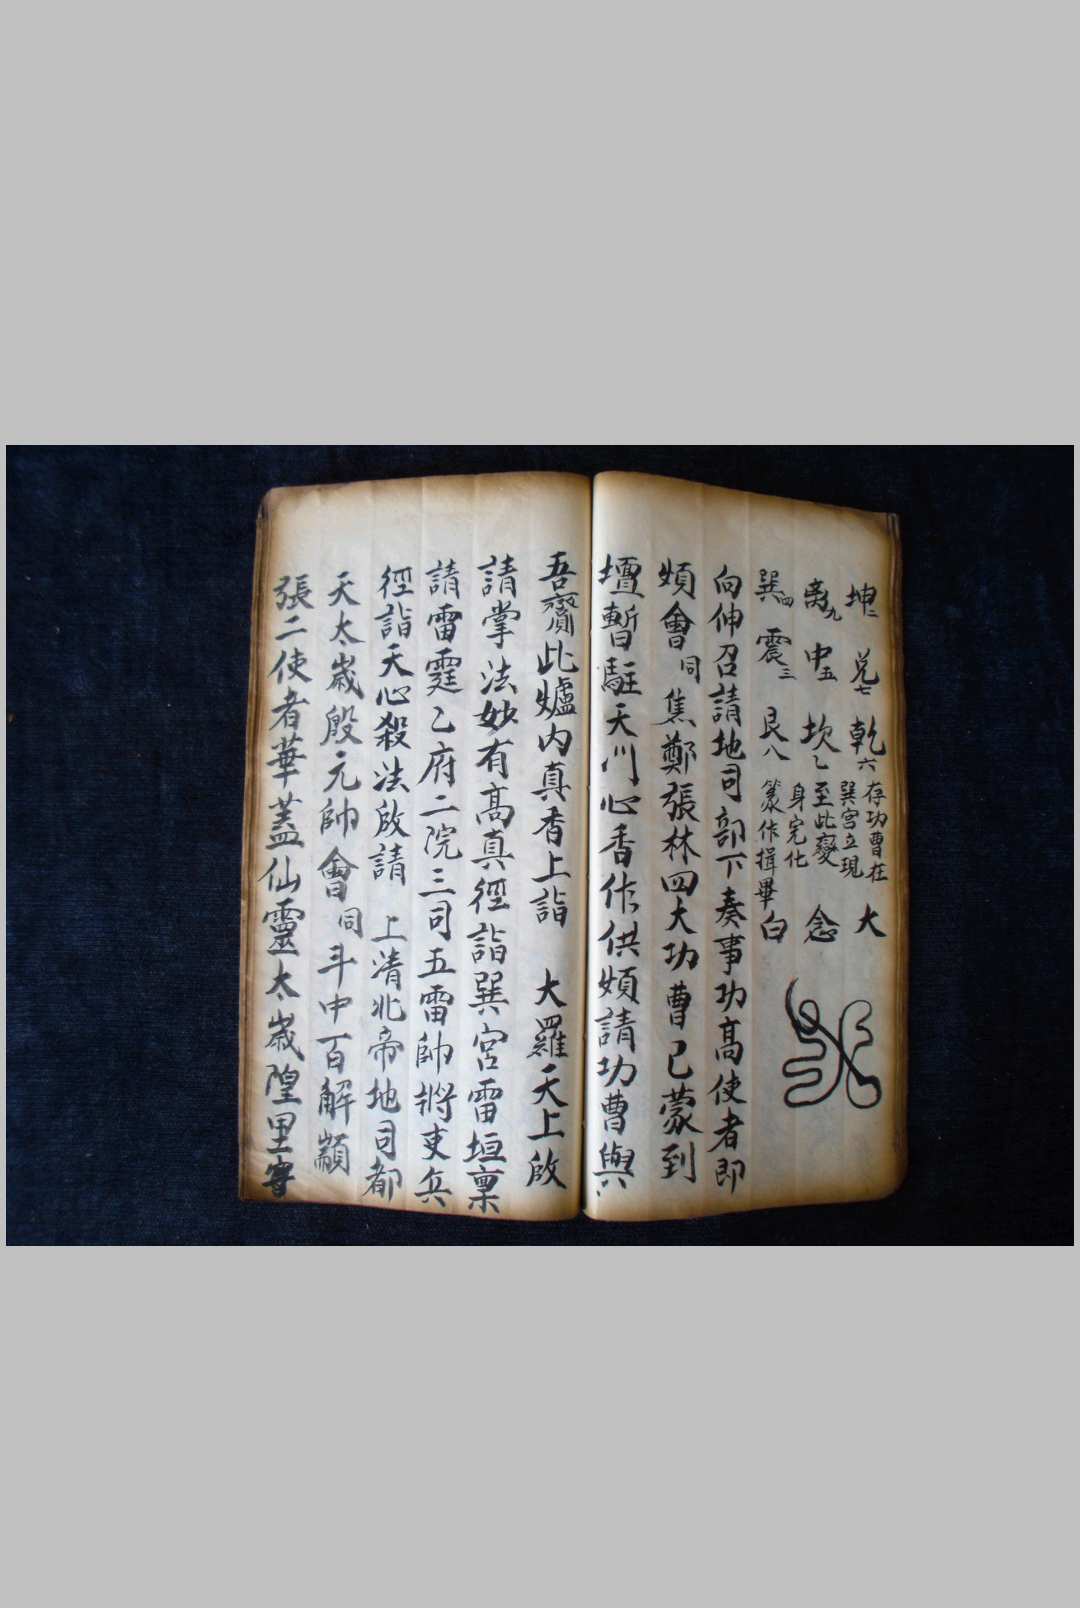 坤二 兌七 乾六 存功曹在 大
離九 中五 坎乙 巽宮立現 至此變 念
巽四 震三 艮八 身完化 篆作揖畢 白
向伸召請地司部下奏事功高使者即
煩會同焦鄭張林四大功曹已蒙到
壇暫駐天門心香作供煩請功曹與
吾齎此爐內真香上詣 大羅天上啟
請掌法妙有高真徑詣巽宮雷垣稟
請雷霆乙府二院三司五雷帥將吏兵
徑詣天心殺法啟請 上清北帝地司都
天太歲殷元帥會同斗中百解顓
張二使者華蓋仙靈太歲隍里